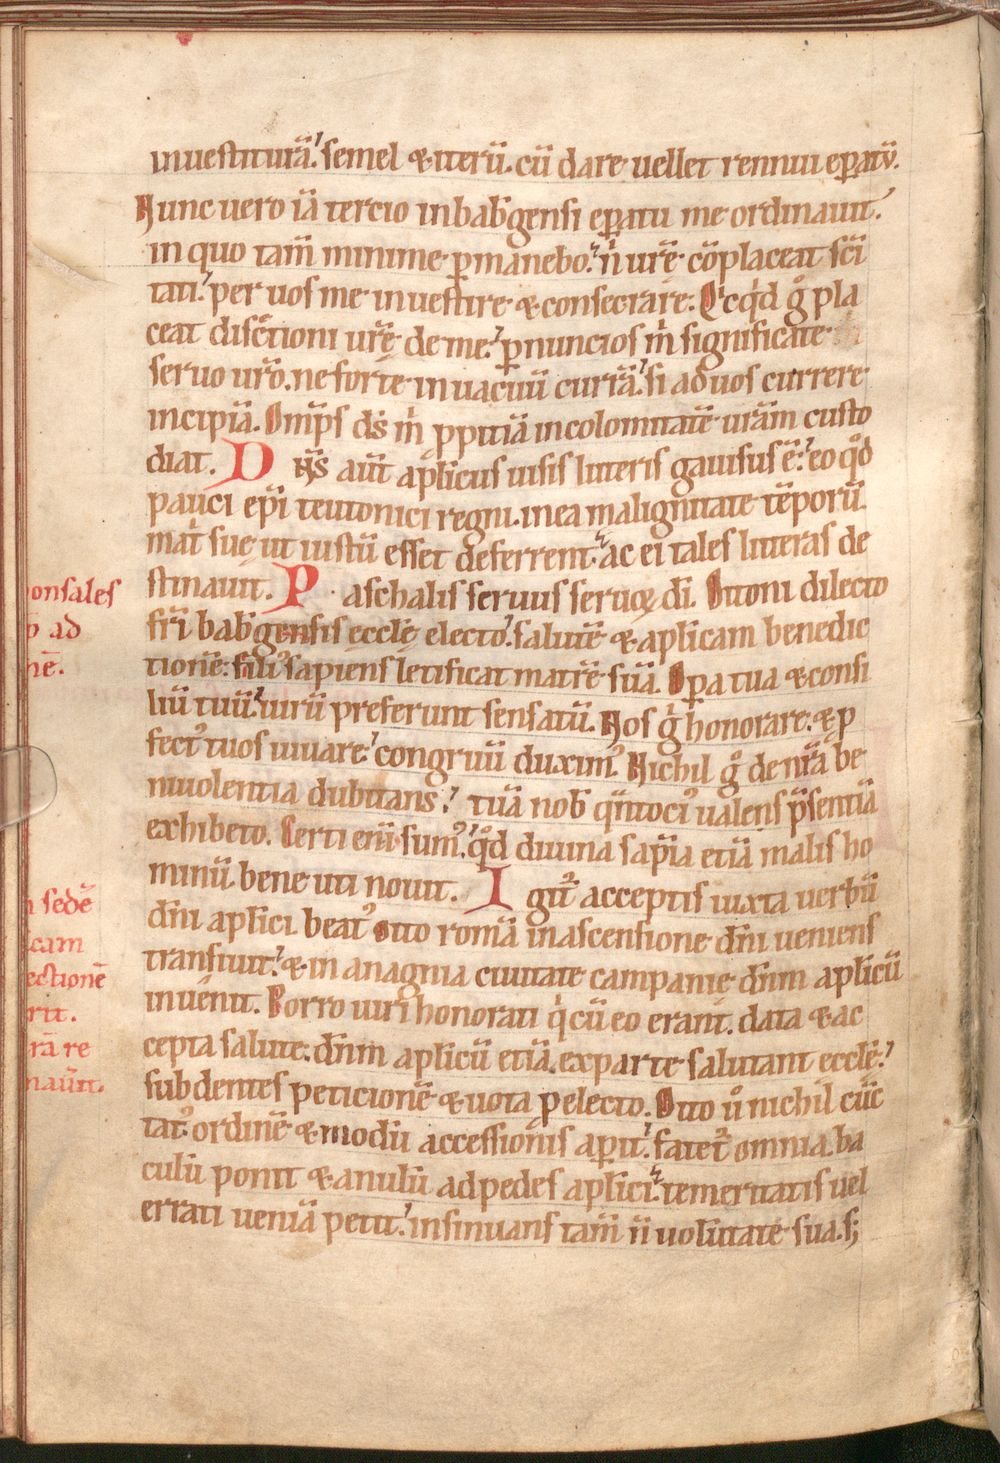 inuestiturā. semel & iterū. cū dare uellet rennui ep̄atū.
Nunc uero iā tercio in bab̄gensi ep̄atu me ordinauit.
in quo tam̄ minime p̱manebo. n̄ ur̄e cōplaceat sc̄i
tati. per uos me inuestire & consecrare. Q̇cq̇d g̊ pla
ceat disc̄tioni ur̄ę de me. p̱ nuncios m̄ significate
seruo ur̄o. ne forte in uacuū curiā. si ad uos currere
incipiā. Om̄ps d̄s m̄ pp̄itiā incolomitatē urām custo
diat. Dn̄s aut̄ ap̄licus uisis litteris gauisus ē. eo q̊d
pauci ep̄i teutonici regni. in ea malignitate tēporū.
mat̄ suę ut iustū esset deferrent. ac ei tales litteras de
stinauit. Paschalis seruus seruoꝝ dī. Ottoni dilecto
fr̄i bab̄gensis eccl̄ę electo. salutē & ap̄licam benedic
tionē. filiꝰ sapiens letificat matrē suā. Op̱a tua & consi
liū tuū. uirū preferunt sensatū. Nos g̊ honorare. & p̱
fectꝰ tuos iuuare. congruū duximꝰ. Nichil g̊ de nr̄a be
niuolentia dubitans. tuā nob̄ qn̄tociꝰ ualens p̄sentiā
exhibeto. Certi eni sumꝰ. q̊d diuina sap̄ia etiā malis ho
minū bene uti nouit. Igit̄ acceptis iuxta uerbū
dn̄i ap̄lici. beatꝰ Otto romā in ascensione dn̄i ueniens
transiuit. & in anagnia ciuitate campanię dn̄m ap̄licū
inuenit. Porro uiri honorati q̇ cū eo erant. data & ac
cepta salute. dn̄m ap̄licū etiā. ex parte salutant eccl̄ę.
subdentes peticionē & uota p̱ electo. Otto ů nichil cūc
tatꝰ. ordinē & modū accessionis ap̱it. fatet̄ omnia. ba
culū ponit & anulū ad pedes ap̄lici. temeritatis uel
errati ueniā petit. insinuans tam̄ n̄ uolūtate sua. s;
onsales
ad
nē.
sedē
cam
ectionē
rit.
rā re
nauit.